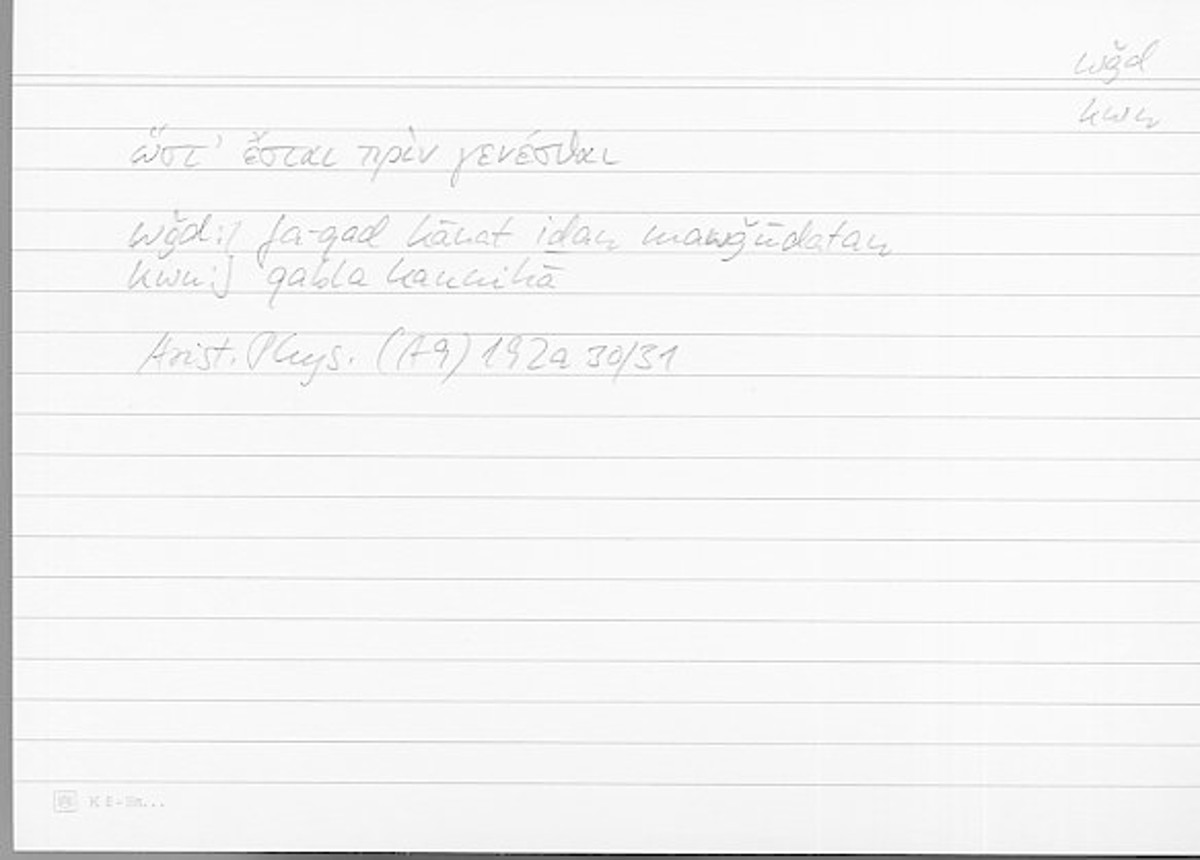 wǧd
kwn
ὥστ' ἔσται πρὶν γενέσθαι
wǧd:] fa-qad kānat iḏan mawǧūdatan
kwn:] qabla kawnihā
Arist. Phys. (A9) 192a 30/31